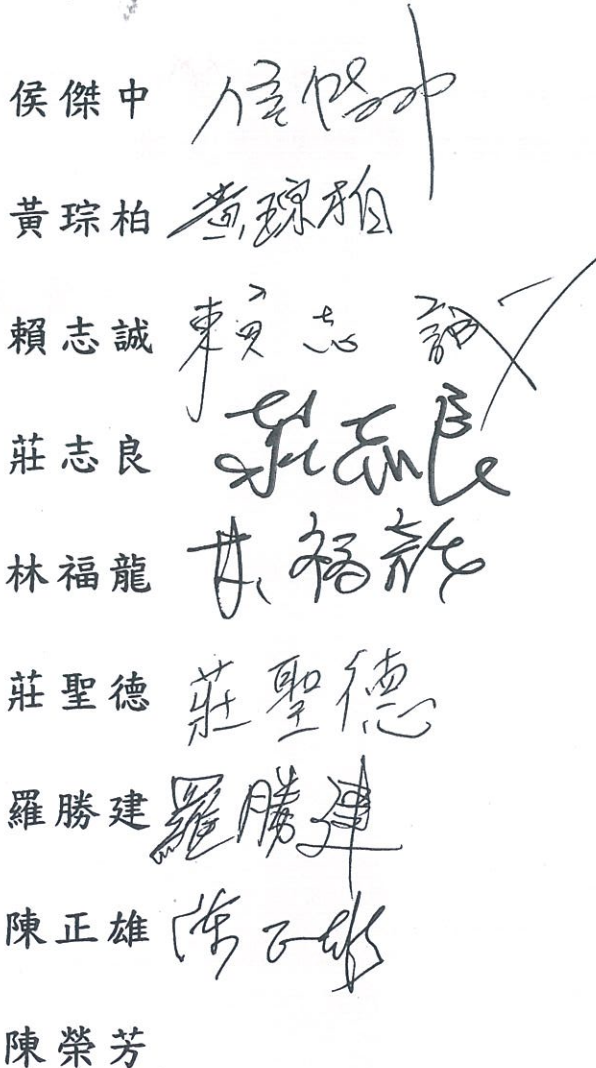 侯傑中 侯傑中
黃琮柏 黃琮柏
賴志誠 賴志誠
莊志良 莊志良
林福龍 林福龍
莊聖德 莊聖德
羅勝建 羅勝建
陳正雄 陳正雄
陳榮芳